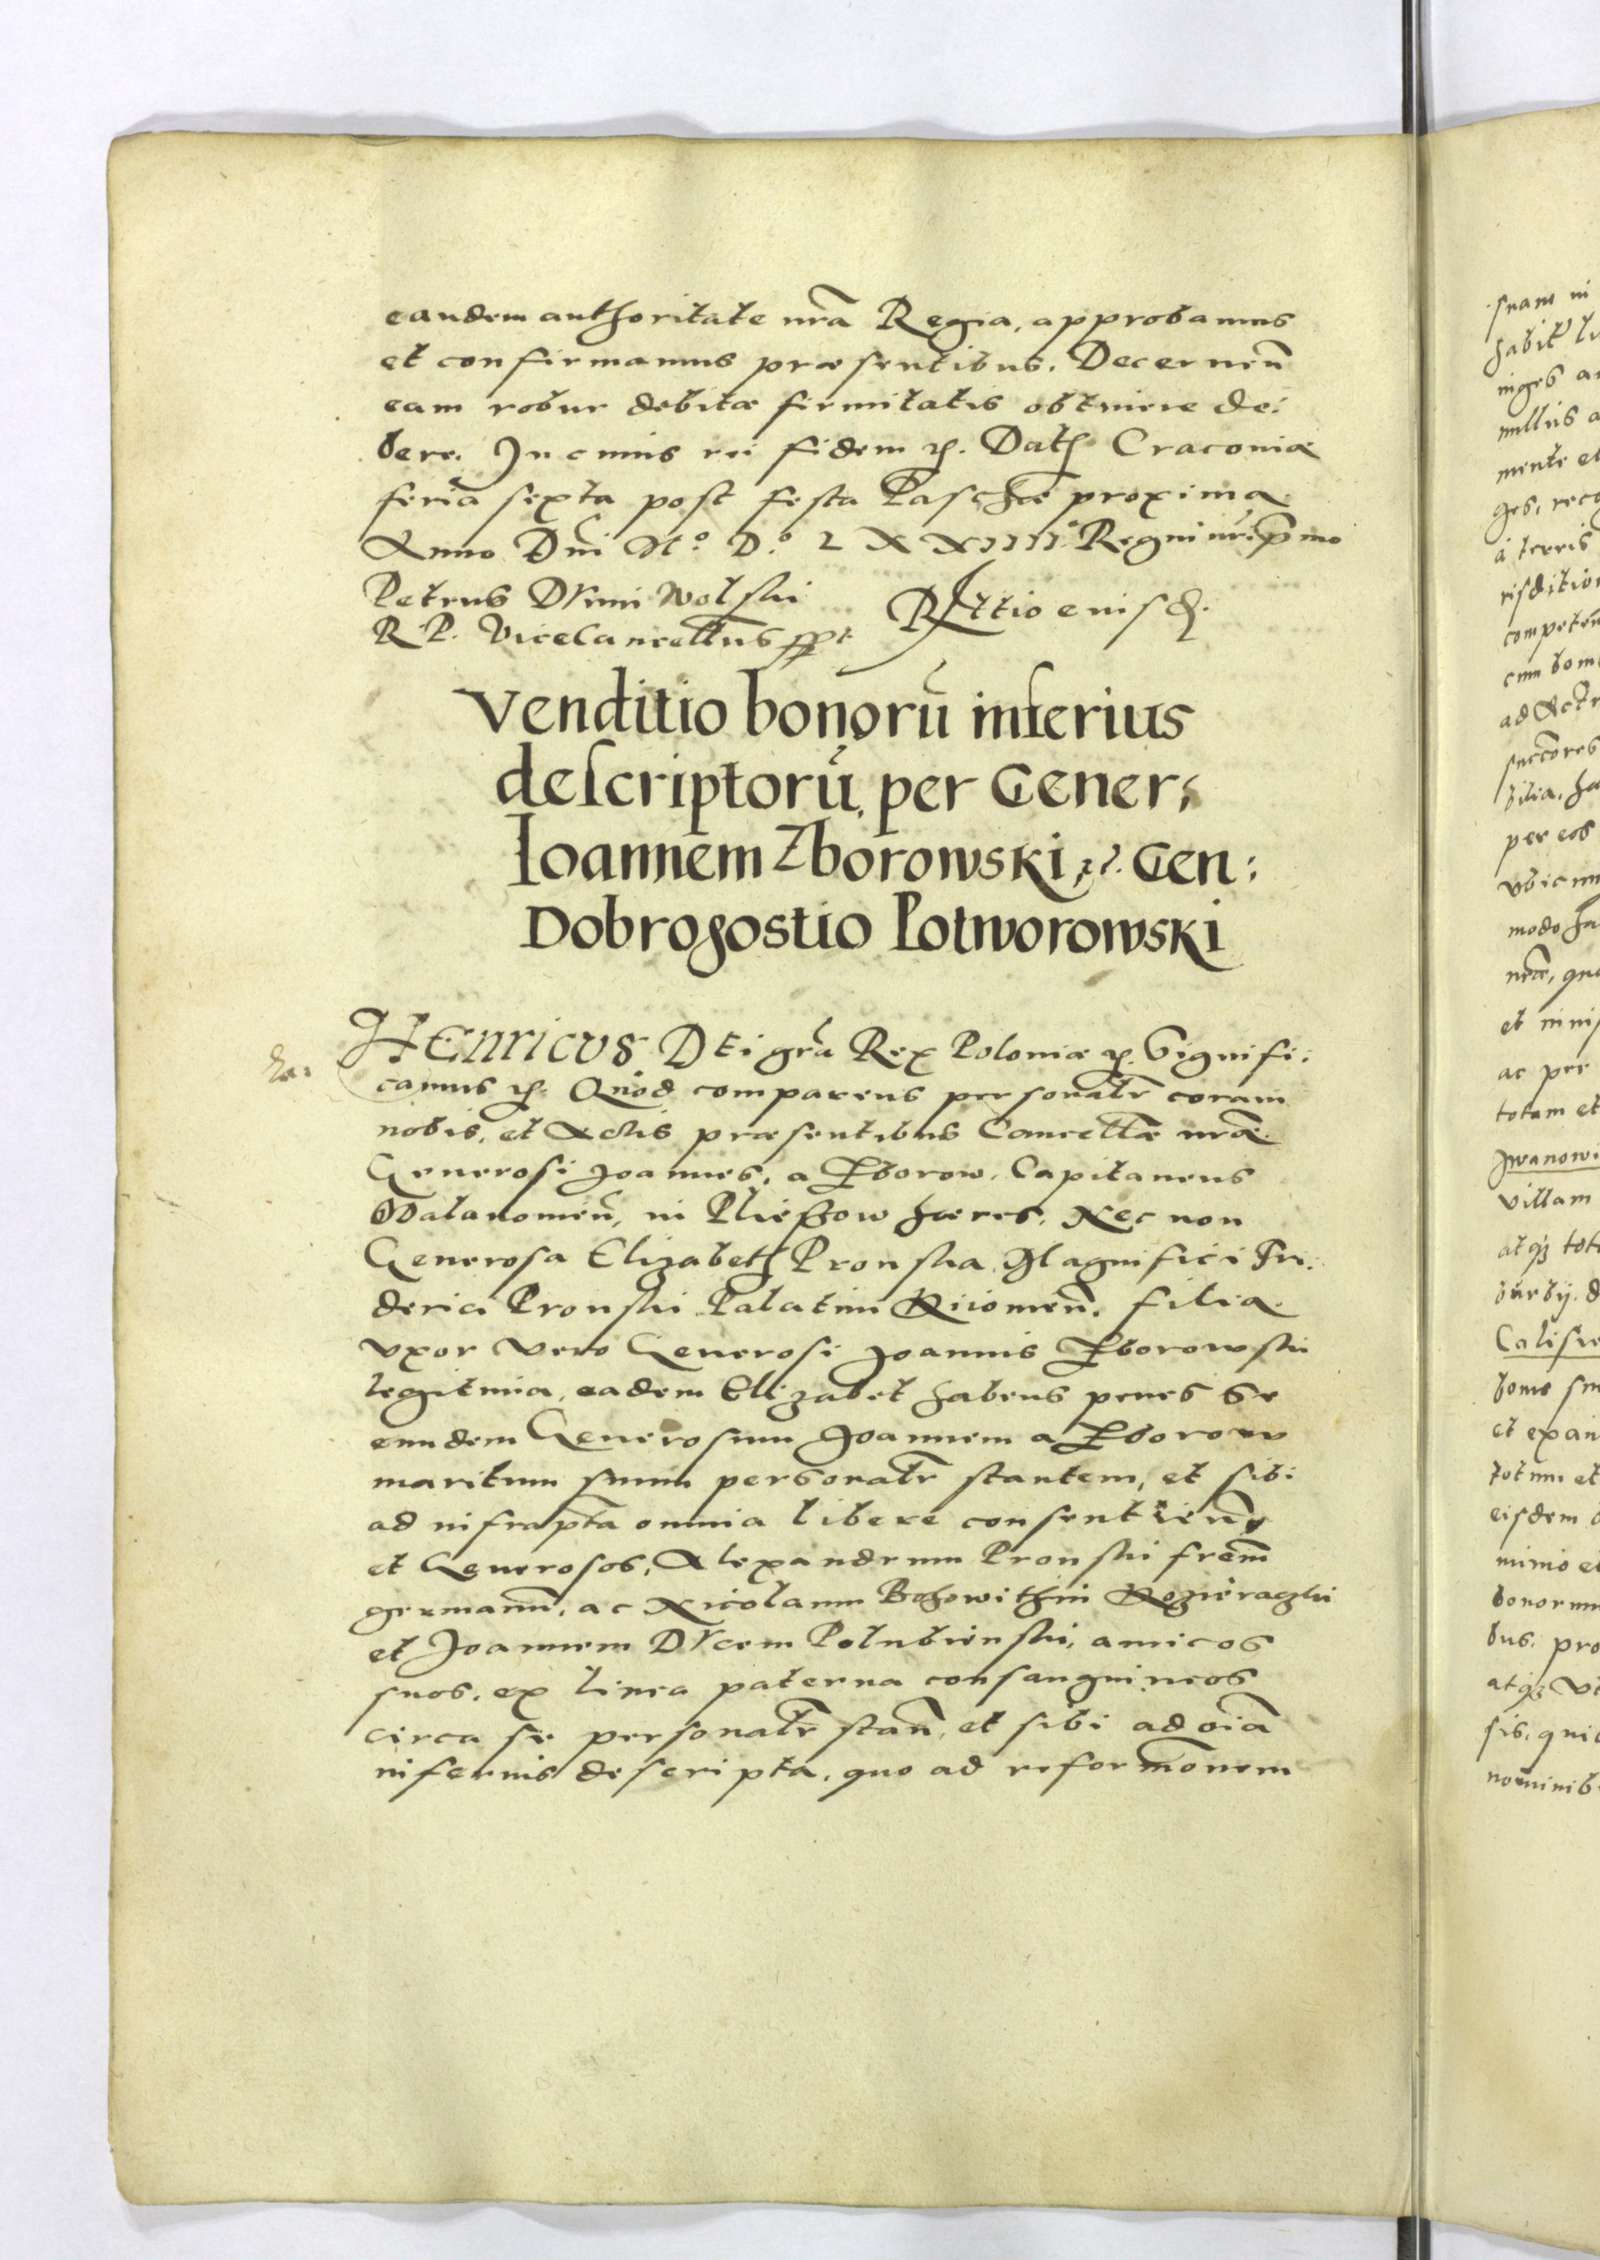 eandem authoritate nrã Regia, approbamus
et confirmamus præsentibus. Decernen̄
eam robur debitæ firmitatis obtinere de:
bere. In cuius rei fidem etc. Dat Cracoviæ
feria sexta post festa Paschæ proxima
Anno Dni Mº. Dº. LXXIIIIº. Regni nri p̃mo
Petrus Dunin Wolski
R. P. Vicecancellarius sspt
Rltio eiusd.
Venditio bonorũ inferius
descriptorũ per Gener:
Ioannem Zborowski, etc. Gen:
Dobrogostio Potworowski
Henricus Dei grã Rex Poloniæ etc. Signifi:
camus etc. Quod comparens personalr̃ coram
nobis, et Actis præsentibus Cancellæ nræ
Generosi Joannes, a Zborow. Capitaneus
Wolanomen̄, in Plieszow hæres. Nec non
Generosa Elizabeth Pronska Magnifici Fri:
derici Pronski Palatini Kiiomen̄, filia
vxor vero Generosi Joannis Zborowski
legitima, eadem Elizabet habens penes se
eundem Generosum Joannem a Zborow
maritum suum personalr̃ stantem, et sibi
ad infrapta omnia libere consentien̄
et Generosos, Alexandrum Pronski frem̃
germanũ, ac Nicolaum Bohowithin Kozieradzki
et Joannem Ducem Polubienski, amicos
suos, ex linea paterna consanguineos
circa se personalr̃ stan̄, et sibi ad oĩa
inferius descripta, quo ad reformãonem
suam in
habit
inges
nullius a
mente et
ges, reco
à terris
risditio
competen
cum bom
ad
per eos
modo ha
nec, quo
et
ac per
totam et
Jwanowi
villam
atqz tot
Calisie
et
totum et
eisdem
mino et
bonorum
bus. pro
atqz vt
sis, quic
nominib